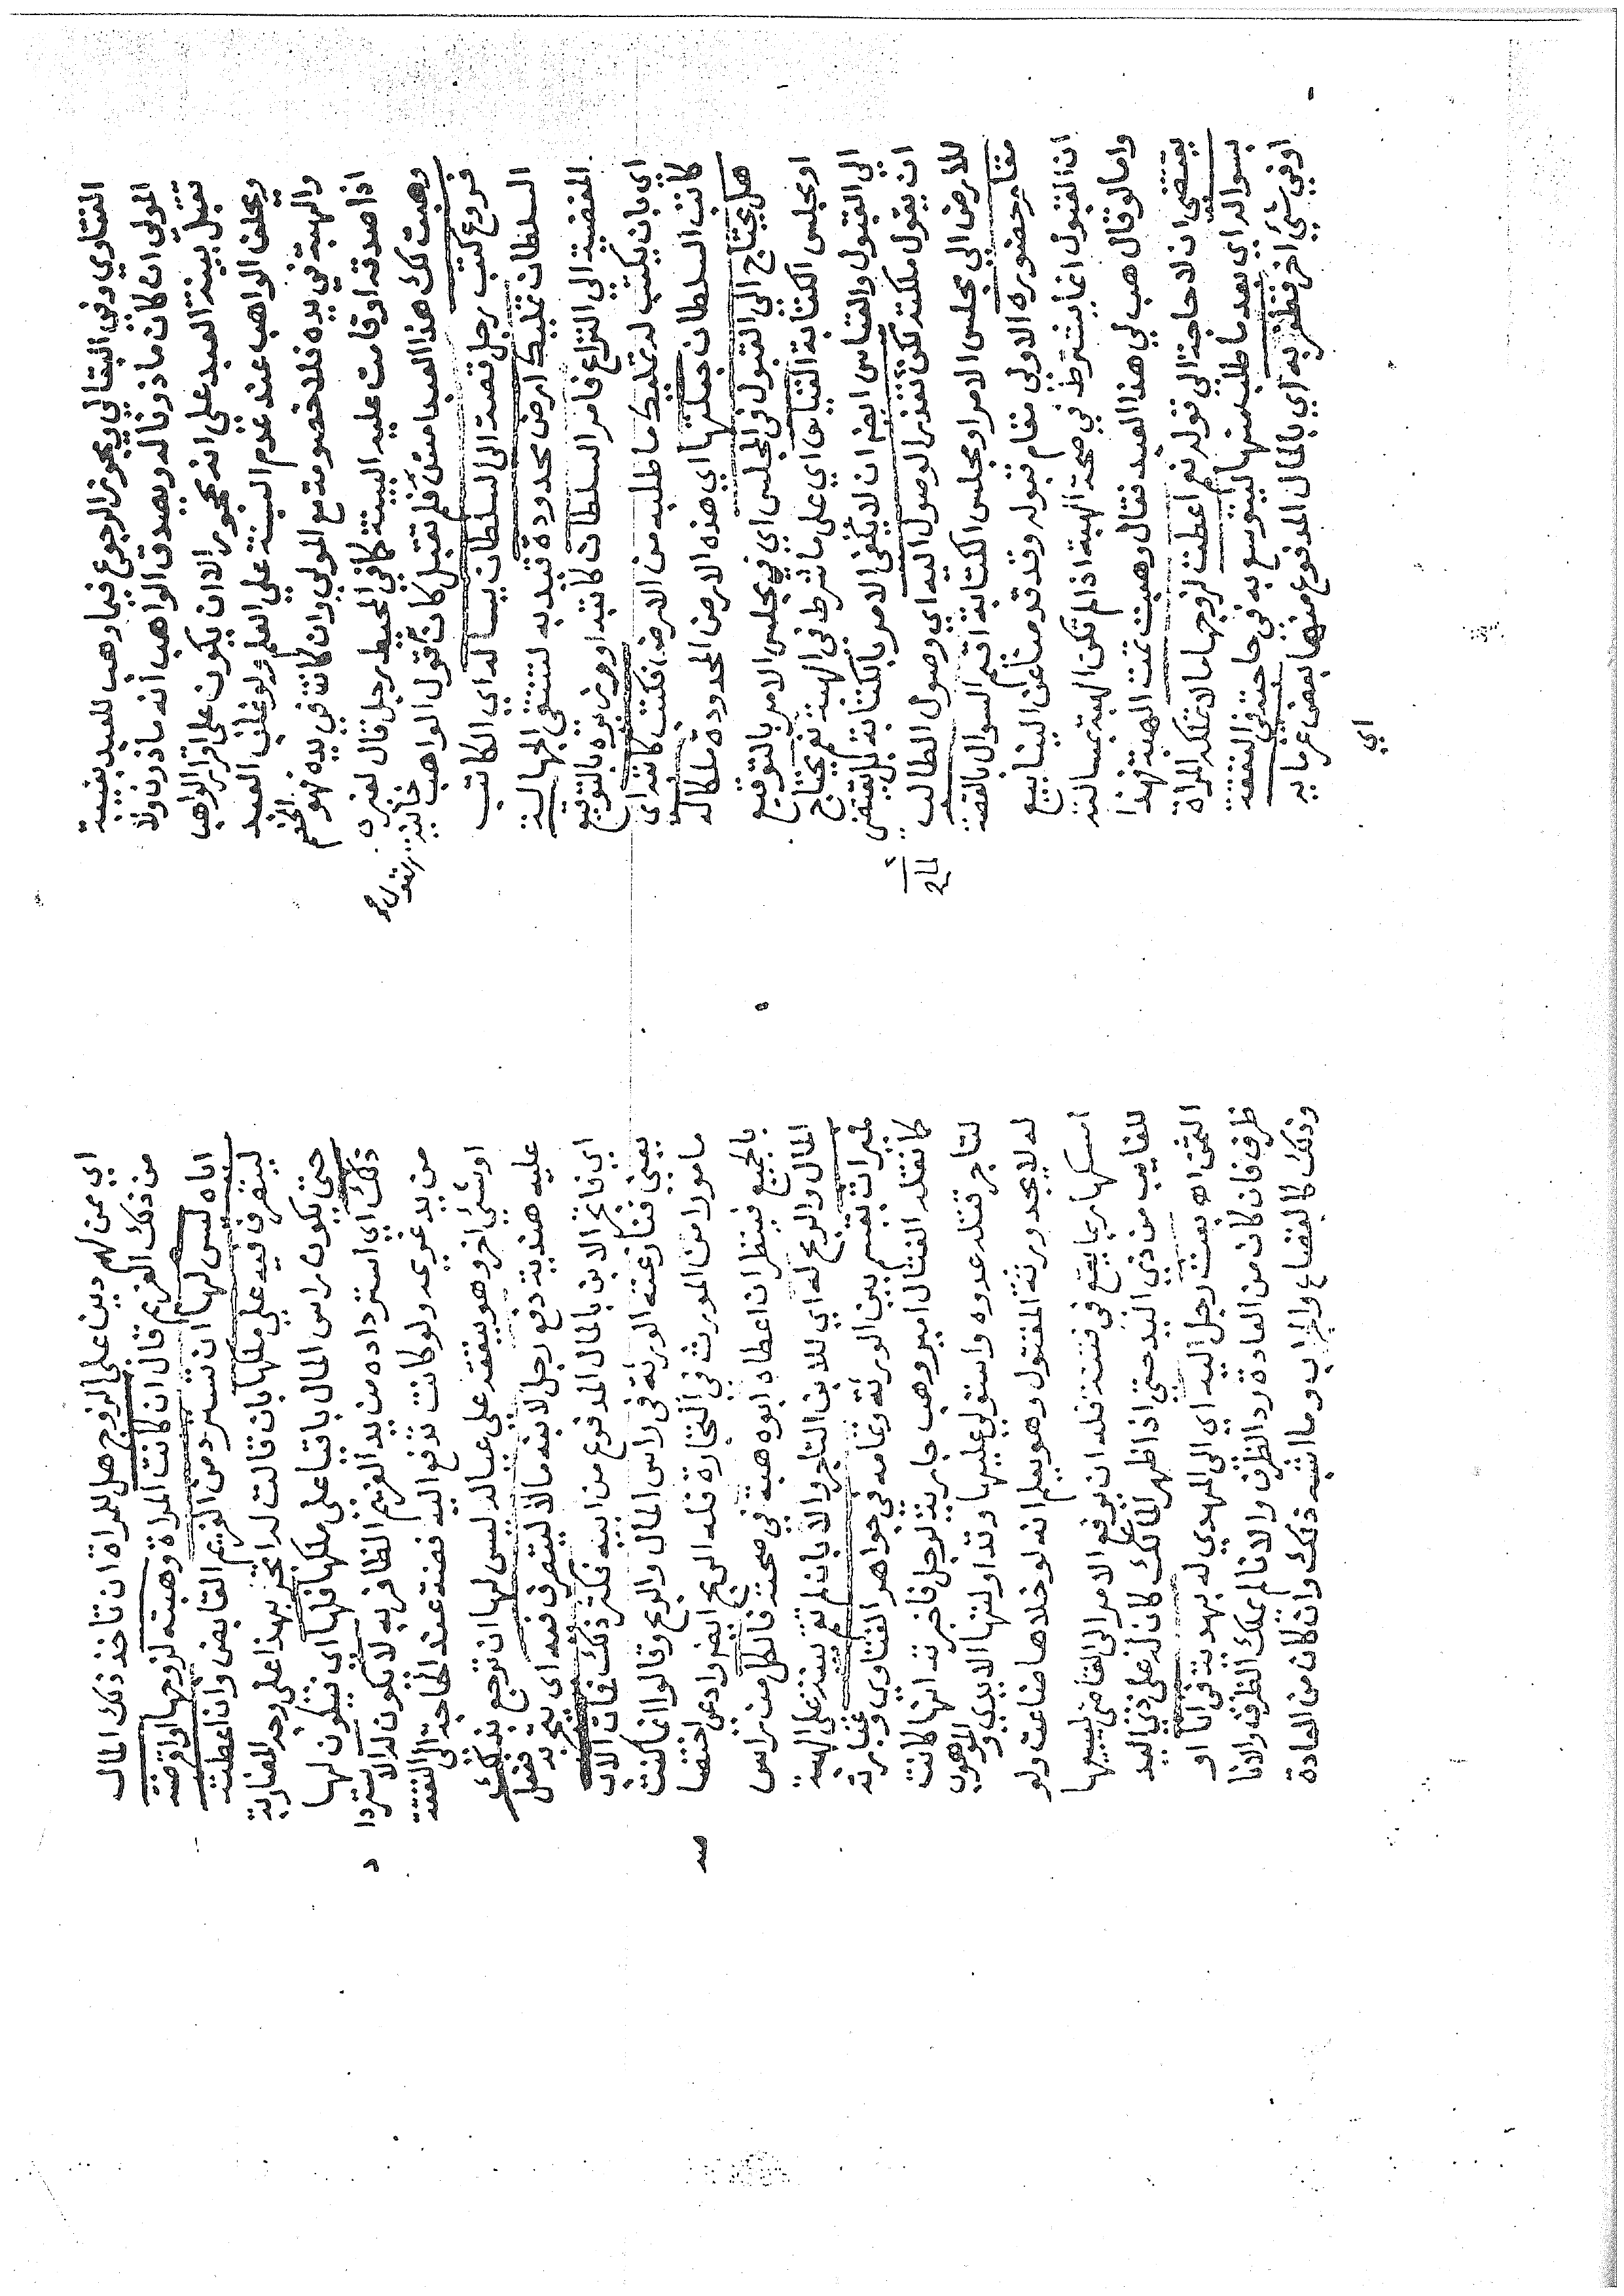 الفتاوي وفي البقالي ويجوز الرجوع فيما وهب للعبد بغيبة
المولي ان كان ماذونا له ويصدق الواهب انه ماذون ولا
تقبل بينة العبد على انه محجور الا ان يكون على اقرار الواهب
ويحلف الواهب عند عدم البينة علي العلم ولو غاب العبد
والهبة في يده فلا خصومة مع المولي وان كانت في يده فهو الخصم
اذا صدقه او قامت عليه البينة كما في المحيط رجل قال لغيره
وهبت لك هذا العبد امس فلم تقبل كان القول قول الواهب خانية
فروع كتب رجل قصة الى السلطان يساله اي الكاتب
السلطان تمليك ارض محدودة قيد به لتنتفي الجهالة
المفضية الى النزاع فامر السلطان كاتبه او وزيره بالتوقيع
اي بان يكتب له تمليك ما طلبه من الارض فكتب كاتبه اي
كاتب السلطان جعلتها اي هذه الارض المحدودة ملكا له
هل يحتاج الى القبول في المجلس اي في مجلس الامر بالتوقيع
او مجلس الكتابة القياس اي على ما شرط في الهبة نعم يحتاج
الي القبول والقياس ايضا ان لا يكفى الامر بالكتابة بل يقتضى
ان يقول ملكته لكن تعذر الوصول اليه اي وصول الطالب
للارض الي مجلس الامر او مجلس الكتابة اقيم السوال بالقصة
مقام حضوره الاولي مقام قبوله وقد قدمنا عن الينابيع
ان القبول انما يشترط في صحة الهبة اذا لم تكن الهبة بمسالته
واما لو قال هب لي هذا العبد فقال وهبت تمت الهبة فهذا
يقتضي ان لا حاجة الي قوله نعم اعطت لزوجها مالا تملكه المراة
بسواله اي بعد ما طلبه منها ليتوسع به في حاجته في النفقة
او في شي اخر فظفر به اي بالمال المدفوع منها بعض غرمايه
اي
اي ممن لهم دين على الزوج هل للمراة ان تاخذ ذلك المال
من ذلك الغريم قال ان كانت المراة وهبته لزوجها او اقرضته
اياه ليس لها ان تسترد من الغريم القابض وان اعطته
ليتصرف فيه علي ملكها بان قالت له اتجر بهذا على وجه المضاربة
حتي يكون راس المال باقيا على ملكها فلها اي فيكون لها
ذلك اي استرداده من يد الغريم الظافر به لا يكون له الاسترداد
من يد غريمه ولو كانت تدفع اليه فضة عند الحاجة الي النفقة
او شي اخر وهو ينفقه علي عياله ليس لها ان ترجع بذلك
عليه هندية دفع رجل لابنه مالا ليتصرف فيه اي يتجر به ففعل
اي فاتجر الابن بالمال المدفوع من ابيه فكثر ذلك فمات الاب
يعني فنازعته الورثة في راس المال والربح وقالوا انما كنت
مامورا من المورث في التجارة فله الربح ايضا وادعى اختصا
بالجميع فينظر ان اعطاه ابوه هبة في صحته فالكل من راس
المال والربح له اي للابن التاجر والا بان لم تقم بينة على الهبة
فميراث يقسم بين الورثة وتمامه في جواهر الفتاوي وعبارته
كما نقله القتال امير وهب جارية لرجل فاخبرته انها كانت
لتاجر قتله عدوه واستولي عليها وتداولتها الايدي والموهوب
له لا يجد ورثة المقتول وهو يعلم انه لو خلاها ضاعت ولو
امسكها ربما يقع في فتنة فله ان يرفع الامر الى القاضي ليبيعها
للغايب من ذي اليد حتي اذا ظهر المالك كان له على ذي اليد
الثمن اه بعث رجل اليه اي الي المهدي له بهدية في اناء او
ظرف فان كان من العادة رد الظرف والاناء لم يملك الظرف والانا
وذلك كالقصاع والجراب وما اشبه ذلك وان كان من العادة